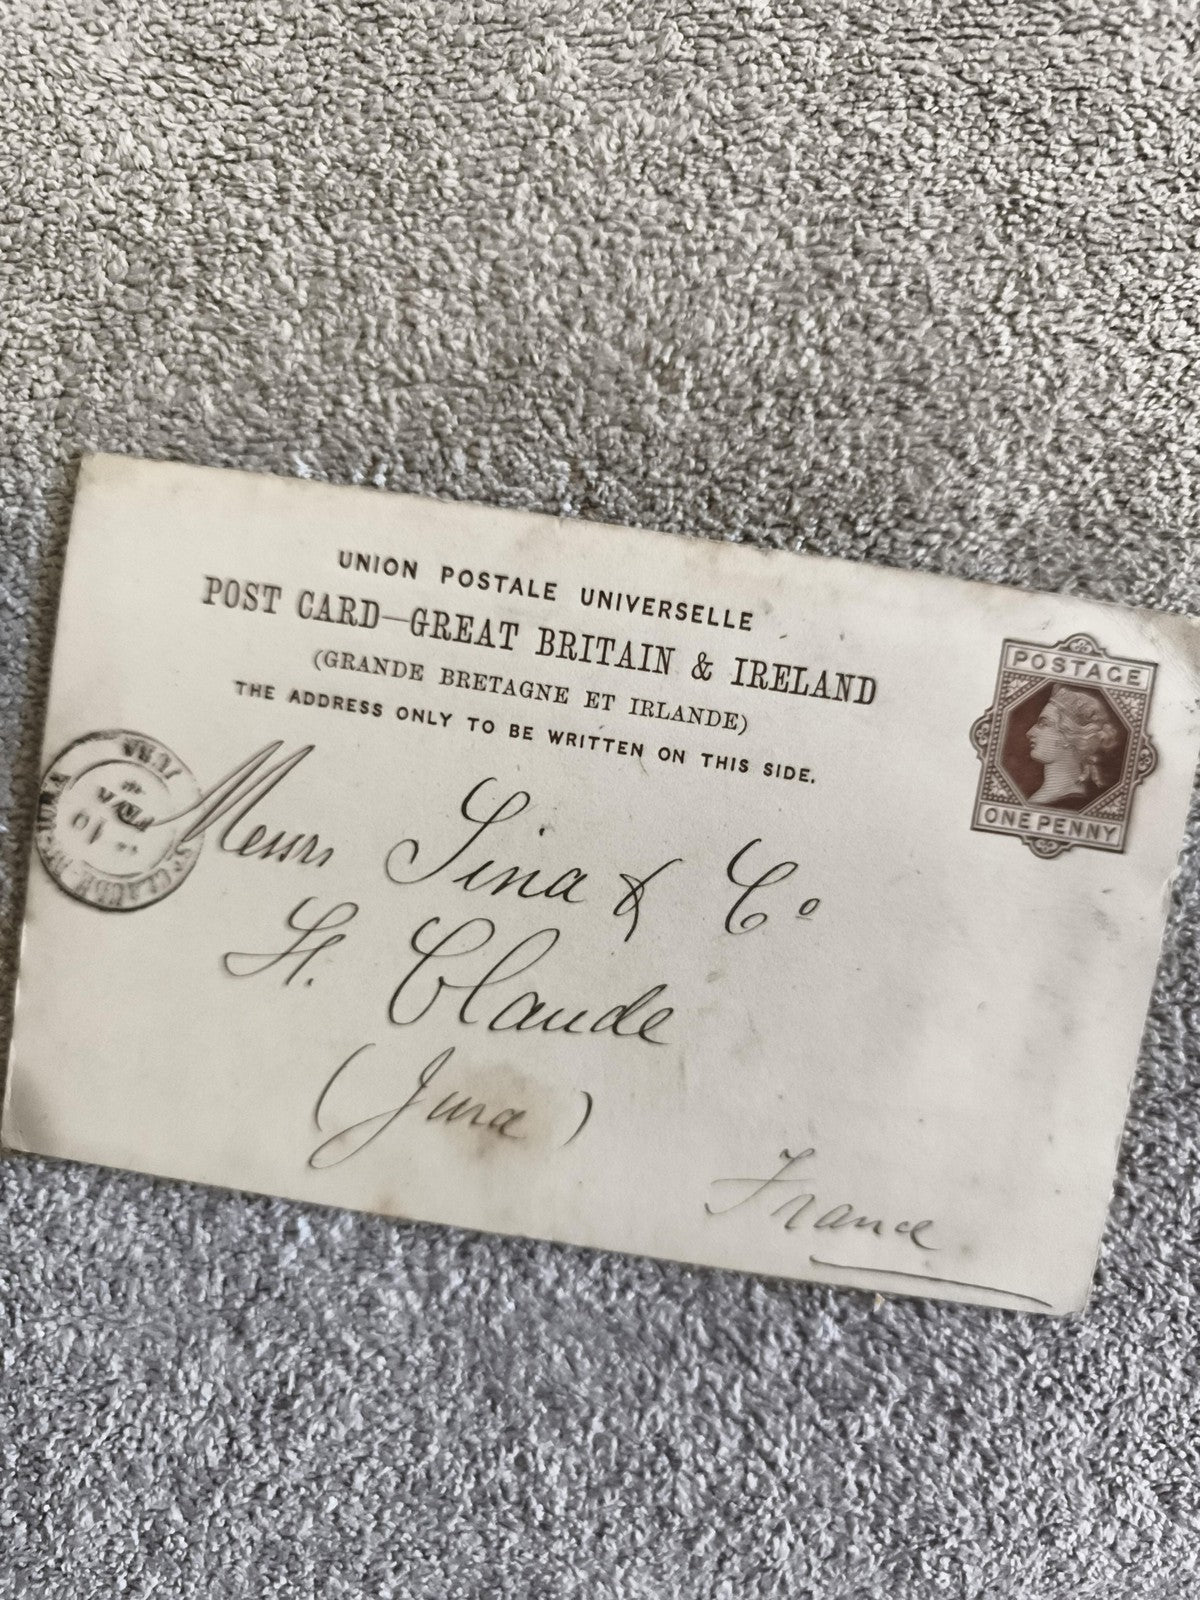 UNION POSTALE UNIVERSELLE
POST CARD—GREAT BRITAIN & IRELAND
(GRANDE BRETAGNE ET IRLANDE)
THE ADDRESS ONLY TO BE WRITTEN ON THIS SIDE.
POSTAGE
ONE PENNY
JURA
ST CLAUDE
Messrs Sina & Co
St. Claude
(Jura)
France